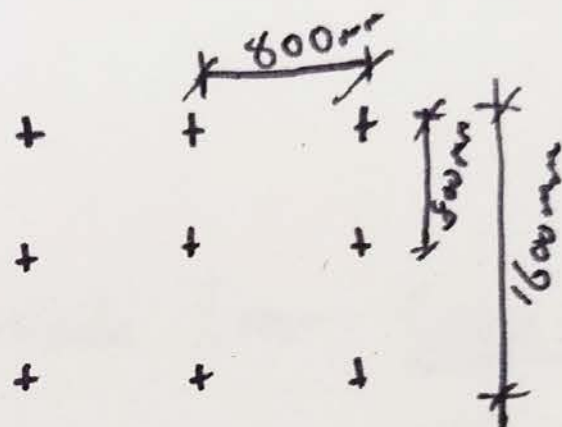 800mm
800mm
1600mm